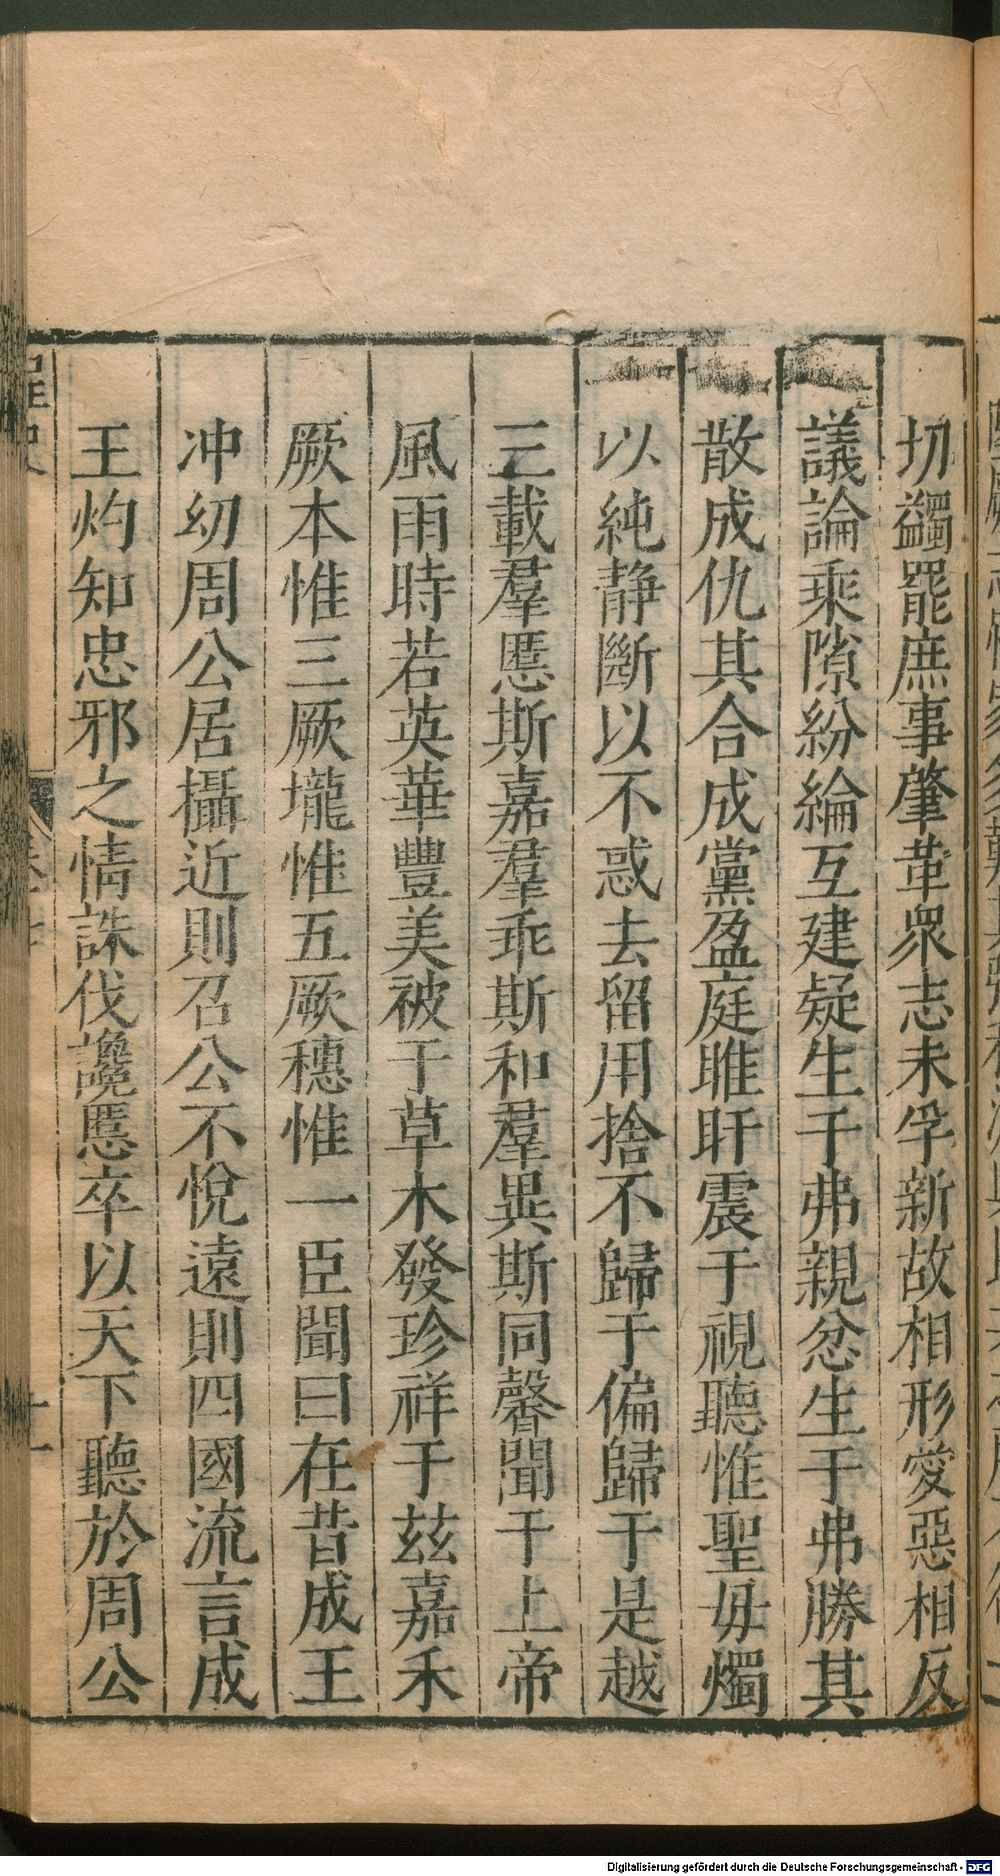 切蠲罷庶事肇革衆志未孚新故相形愛惡相反
議論乘隙紛綸互建疑生于弗親忿生于弗勝其
散成仇其合成黨盈庭睢盱震于視聽惟聖毋燭
以純静斷以不惑去留用捨不歸于偏歸于是越
三載羣慝斯嘉羣乖斯和羣異斯同馨聞于上帝
風雨時若英華豐美被于草木發珍祥于兹嘉禾
厥本惟三厥壠惟五厥穗惟一臣聞曰在昔成王
冲幼周公居攝近則召公不悅遠則四國流言成
王灼知忠邪之情誅伐讒慝卒以天下聽於周公
十一
Digitalisierung gefördert durch die Deutsche Forschungsgemeinschaft - DFG